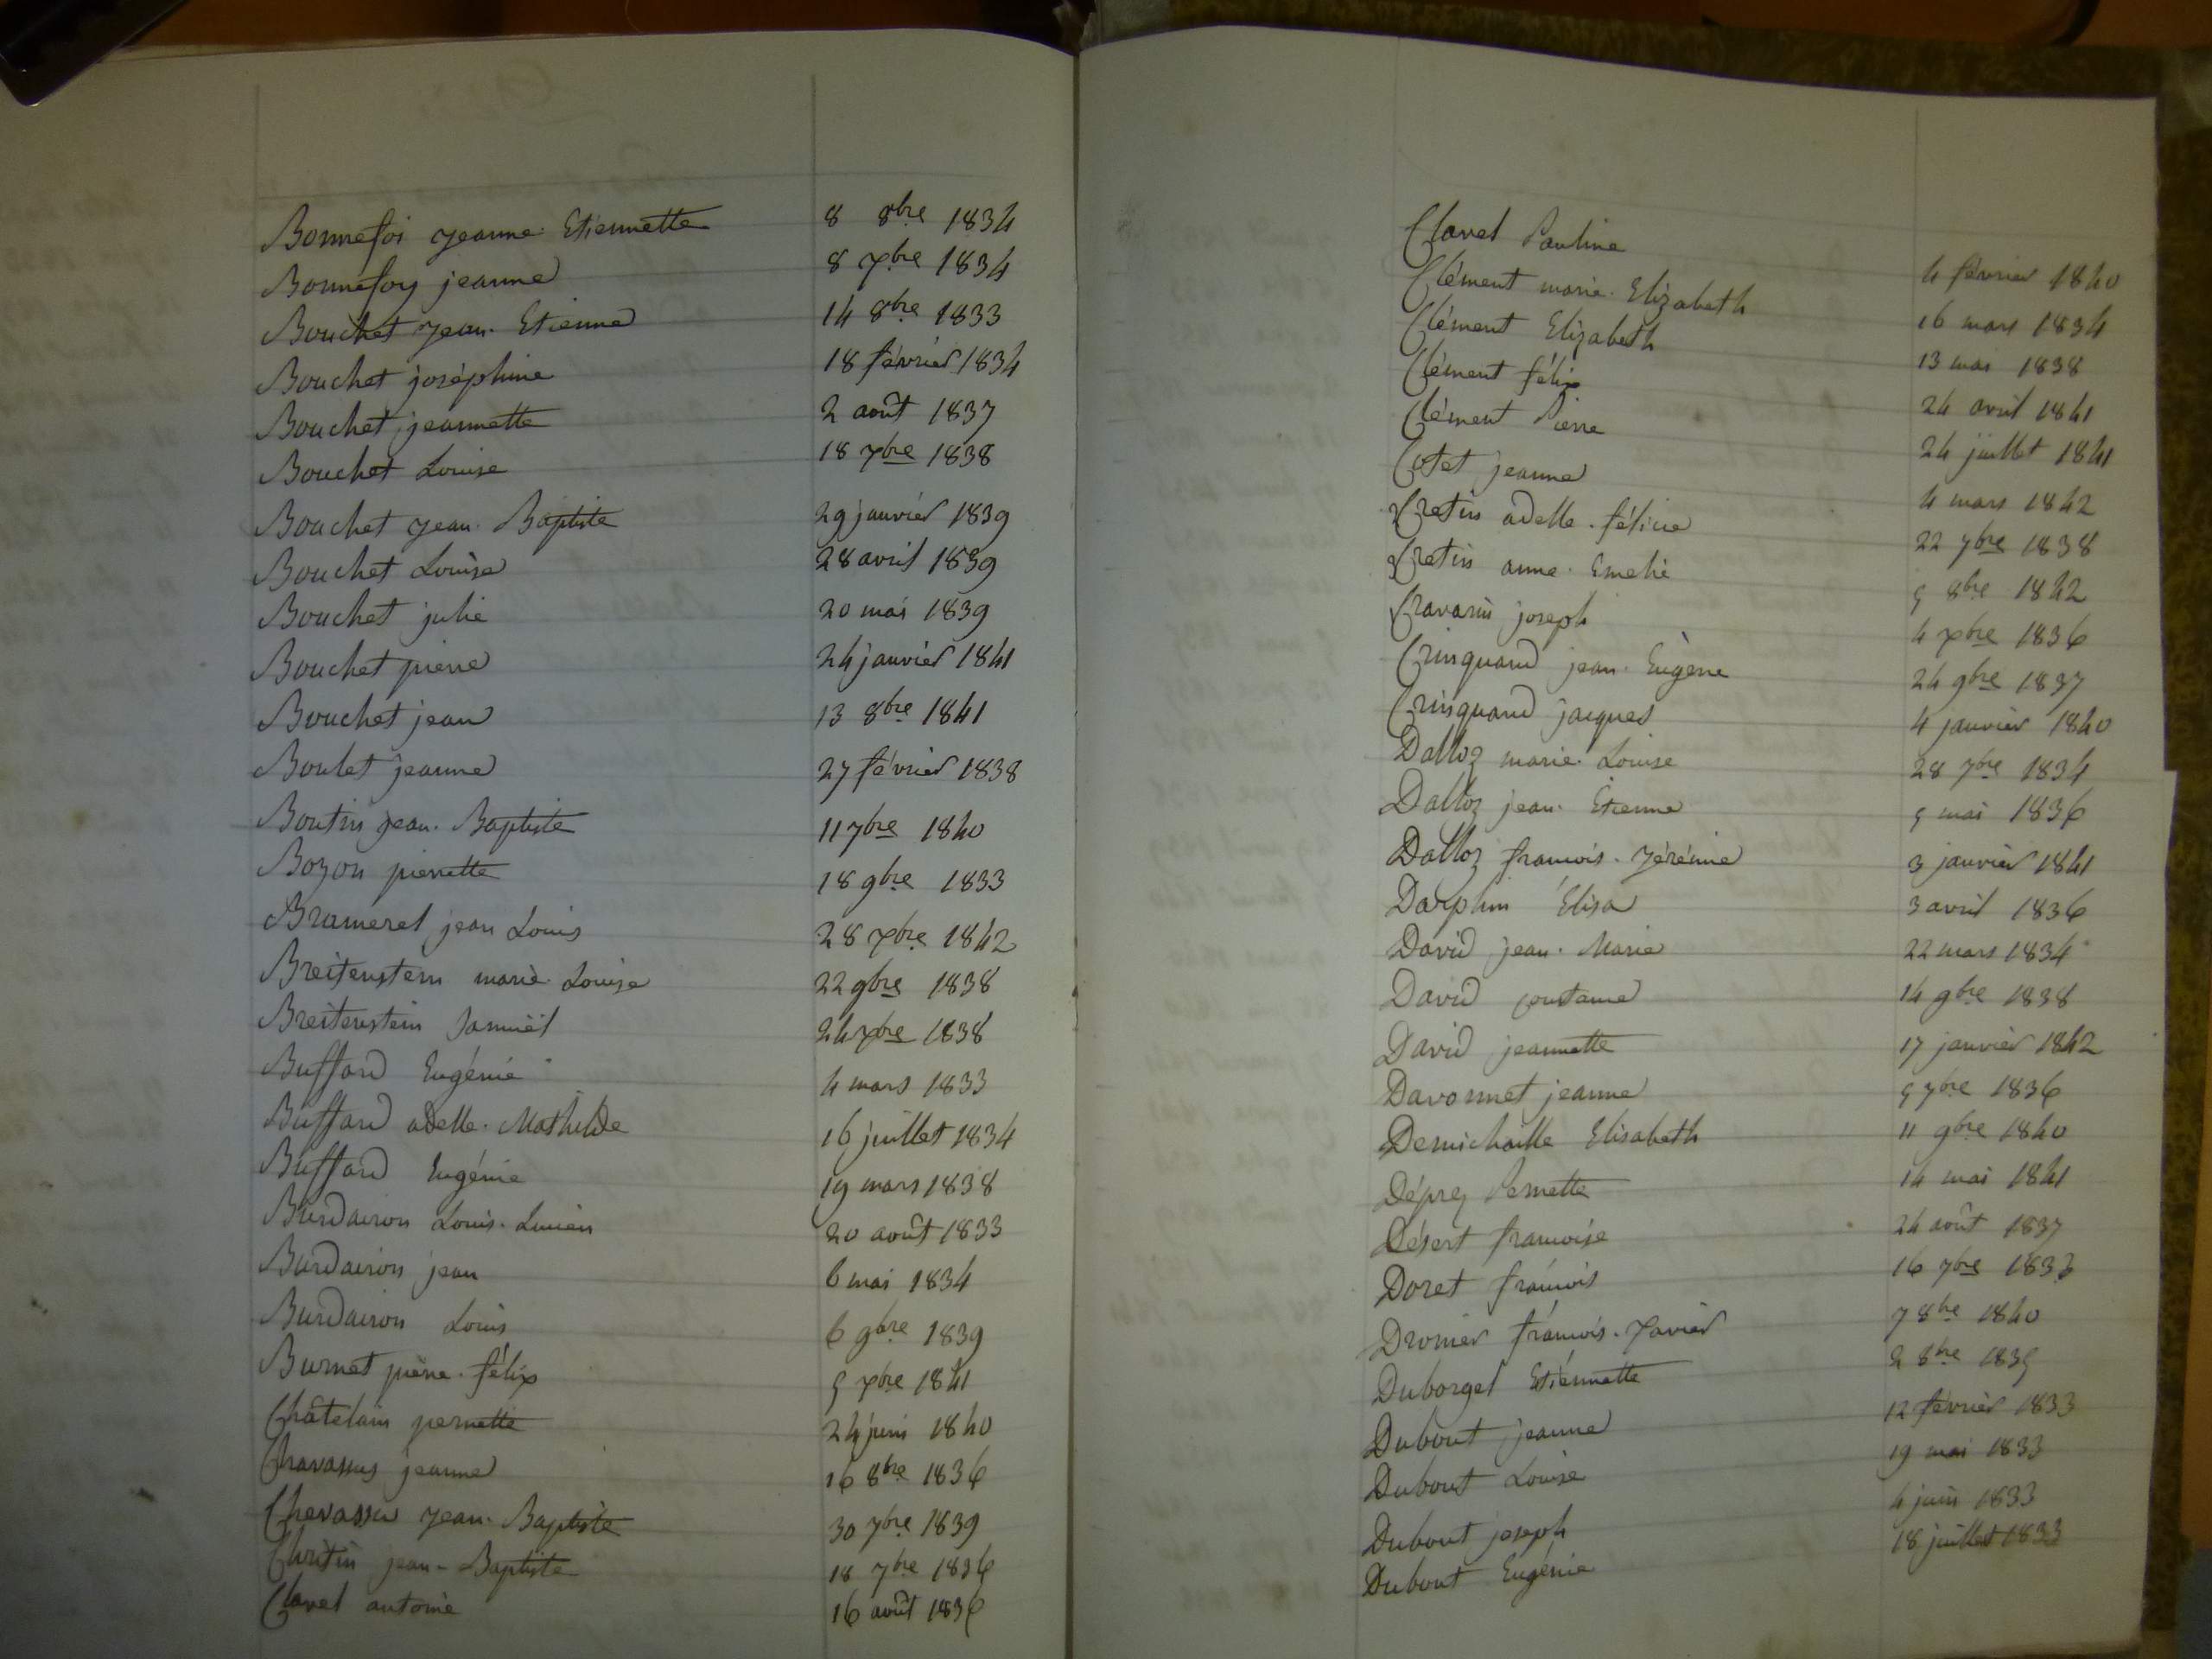 Bonnefoi Jeanne Etiennette 8 8bre 1834
Bonnefoy jeanne 8 Xbre 1834
Bouchet Jean Etienne 14 8bre 1833
Bouchet joséphine 18 février 1834
Bouchet jeannette 2 août 1837
Bouchet Louise 18 Xbre 1838
Bouchet Jean Baptiste 29 janvier 1839
Bouchet Louise 28 avril 1839
Bouchet julie 20 mai 1839
Bouchet pierre 24 janvier 1841
Bouchet jean 13 8bre 1841
Boulet jeanne 27 février 1838
Boutin Jean Baptiste 11 7bre 1840
Bozon pierrette 18 9bre 1833
Brameret jean Louis 28 Xbre 1842
Breitenstein marie Louise 22 9bre 1838
Breitenstein Samuël 24 Xbre 1838
Buffard Eugénie 4 mars 1833
Buffard adelle Mathilde 16 juillet 1834
Buffard Eugénie 19 mars 1838
Burdairon Louis Lucien 20 août 1833
Burdairon jean 6 mai 1834
Burdairon Louis 6 9bre 1839
Burnet pierre félix 5 Xbre 1841
Châtelain pernette 24 juin 1840
Chavassus jeanne 16 8bre 1836
Chevassu Jean Baptiste 30 7bre 1839
Christin jean-Baptiste 18 7bre 1836
Clavel antoine 16 août 1836
Clavel Pauline 4 février 1840
Clément marie Elizabeth 16 mars 1834
Clément Elizabeth 13 mai 1838
Clément félix 24 avril 1841
Clément Pierre 24 juillet 1841
Cotet jeanne 4 mars 1842
Cretin adelle félicie 22 7bre 1838
Cretin anne Emelie 5 8bre 1842
Cravarin joseph 4 Xbre 1836
Crinquand jean Eugène 24 9bre 1837
Crinquand jacques 4 janvier 1840
Dalloz marie Louise 28 7bre 1834
Dalloz jean Etienne 5 mai 1836
Dalloz francois Jérémie 3 janvier 1841
Darphin Élisa 3 avril 1836
David jean Marie 22 mars 1834
David constance 14 9bre 1838
David jeannette 17 janvier 1842
Davonnet jeanne 5 7bre 1836
Demichaille Elisabeth 11 9bre 1840
Déprez Pernette 14 mai 1841
Désert francoise 24 août 1837
Doret francois 16 7bre 1833
Dromer francois Xavier 7 8bre 1840
Duborgel Etiennette 2 8bre 1835
Dubout jeanne 12 février 1833
Dubout Louise 19 mai 1833
Dubout joseph 4 juin 1833
Dubout Eugénie 18 juillet 1833